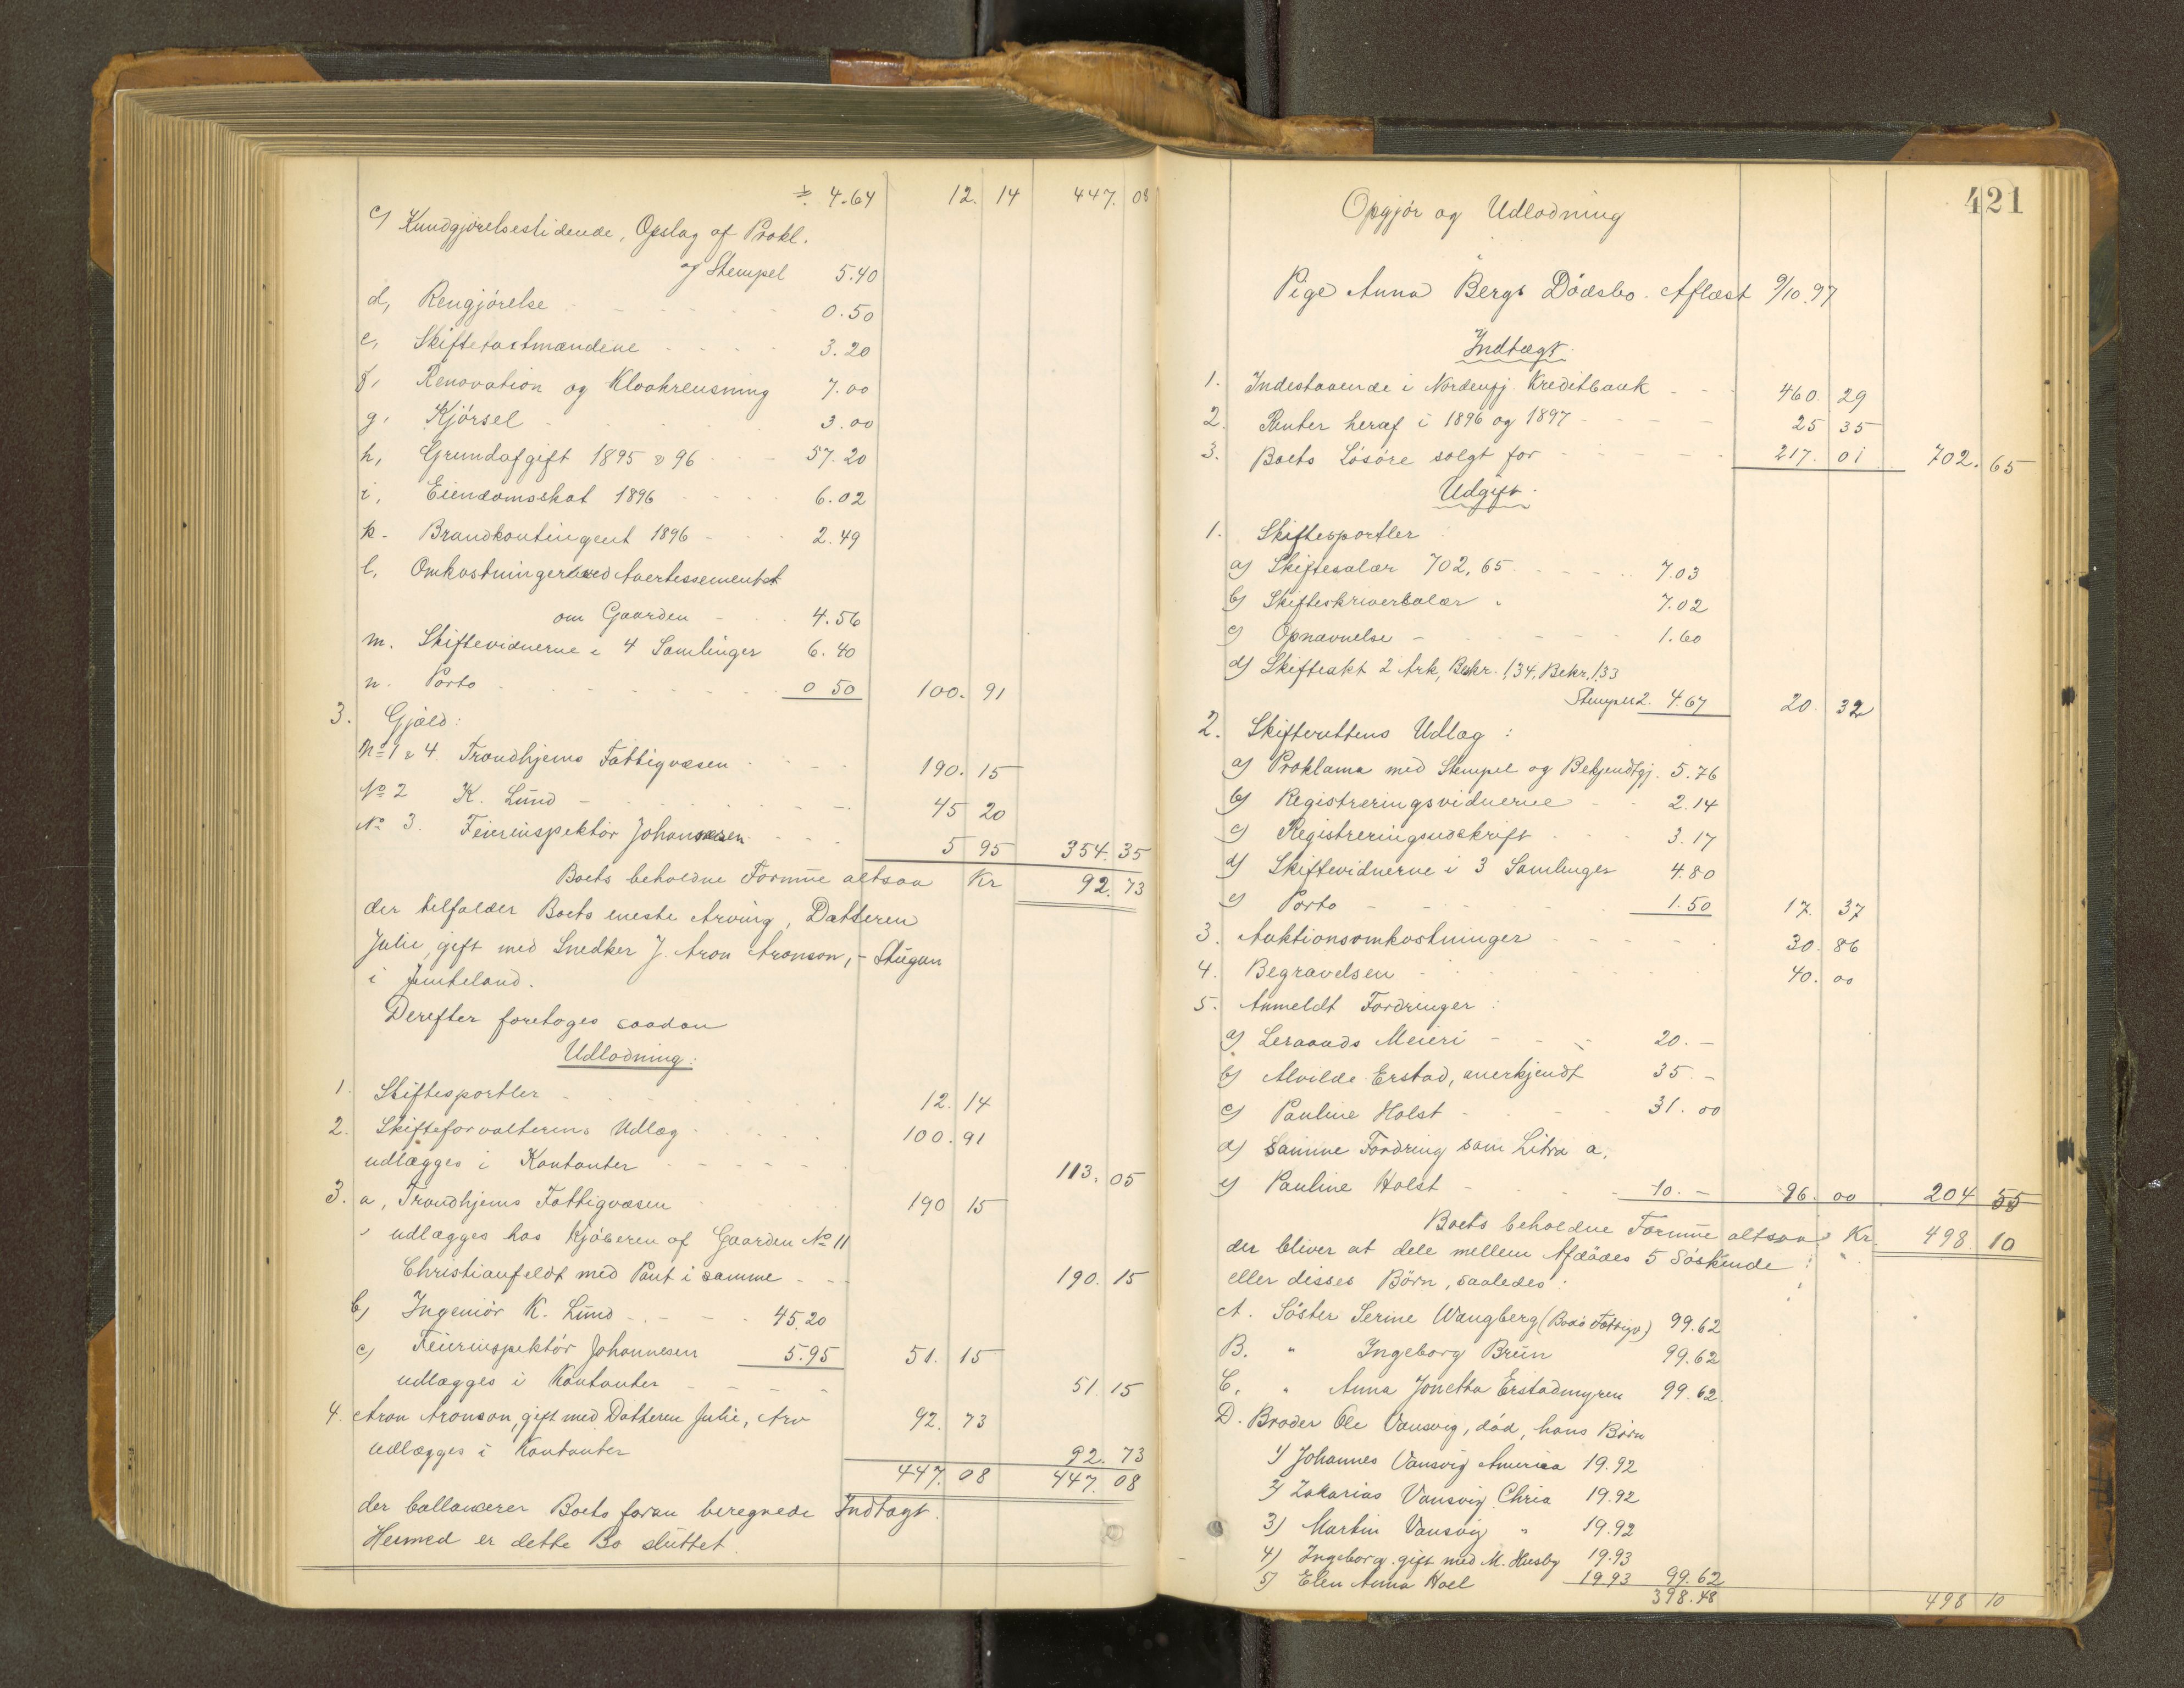 ÷ 4.64 12.14 447.08
c) Kundgjørelsestidende, Opslag af Prokl.
og Stempel 5.40
d, Rengjørelse 0.50
e, Skiftetaxtmændene 3.20
f, Renovation og Kloakrensning 7.00
g, Kjørsel 3.00
h, Grundafgift 1895 & 96 57.20
i, Eiendomsskat 1896 6.02
k. Brandkontingent 1896 2.49
l, Omkostninger med Avertissementet
om Gaarden 4.56
m. Skiftevidnerne i 4 Samlinger 6.40
n. Porto 0 50 100.91
3. Gjæld:
No 1 & 4 Trondhjems Fattigvæsen 190.15
No 2 K. Lund 45 20
No 3. Feierinspektør Johannesen 5 95 354.35
Boets beholdne Formue altsaa Kr 92.73
der tilfalder Boets eneste Arving, Datteren
Julie, gift med Snedker J. Aron Aronson, - Stugun
i Jemteland.
Derefter foretoges saadan
Udlodning:
1. Skiftesportler 12.14
2. Skifteforvalterens Udlæg 100.91
udlægges i Kontanter 113.05
3. a, Trondhjems Fattigvæsen 190 15
udlægges hos Kjøberen af Gaarden No 11
Christianfeldt med Pant i samme 190.15
b) Ingeniør K. Lund 45.20
c) Feierinspektør Johannesen 5.95 51.15
udlægges i Kontanter 51.15
4. Aron Aronson, gift med Datteren Julie, Arv 92.73
udlægges i Kontanter 92.73
447.08 447.08
der ballancerer Boets foran beregnede Indtægt.
Hermed er dette Bo sluttet.
421
Opgjør og Udlodning
i
Pige Anna Bergs Dødsbo. Aflæst 9/10.97
Indtægt.
1. Indestaaende i Nordenfj. Kreditbank 460.29
2. Renter heraf i 1896 og 1897 25 35
3. Boets Løsøre solgt for 217.01 702.65
Udgift.
1. Skiftesportler:
a) Skiftesalær 702,65 7.03
b) Skifteskriversalær " 7.02
c) Opnævnelse 1.60
d) Skifteakt 2 Ark, Beskr. 1,34, Bekr. 1,33
Stempel 2. 4.67 20.32
2. Skifterettens Udlæg:
a) Proklama med Stempel og Bekjendtgj. 5.76
b) Registreringsvidnerne 2.14
c) Registreringsudskrift 3.17
d) Skiftevidnerne i 3 Samlinger 4.80
e) Porto 1.50 17.37
3. Auktionsomkostninger 30.86
4. Begravelsen 40.00
5. Anmeldt Fordringer:
a) Leraands Meieri 20.-
b) Alvilde Erstad, anerkjendt 35.-
c) Pauline Holst 31.00
d) Samme Fordring som Litra a.
e) Pauline Holst 10.- 96.00 204 55
Boets beholdne Formue altsaa Kr. 498 10
der bliver at dele mellem Afdødes 5 Søskende
eller disses Børn, saaledes:
A. Søster Serine Wangberg (Bodø Fattigv) 99.62
B. " Ingeborg Brun 99.62
C. " Anna Jonetta Erstadmyren 99.62
D. Broder Ole Vansvig, død, hans Børn
1) Johannes Vansvig America 19.92
2) Zakarias Vansvig Chria 19.92
3) Martin Vansvig " 19.92
4) Ingeborg gift med M. Husby 19.93
5) Elen Anna Hoel 19.93 99.62
398.48 498 10